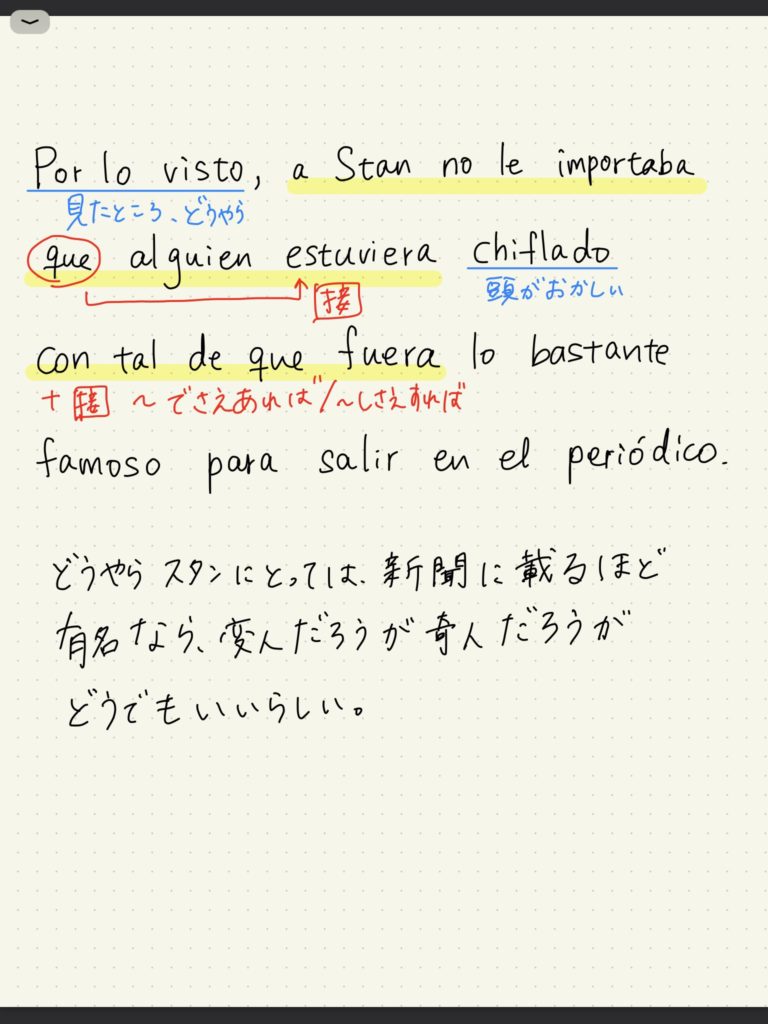 Por lo visto, a Stan no le importaba
見たところ、どうやら
que alguien estuviera chiflado
接 頭がおかしい
con tal de que fuera lo bastante
+ 接 〜でさえあれば/〜しさえすれば
famoso para salir en el periódico.
どうやらスタンにとっては、新聞に載るほど
有名なら、変人だろうが奇人だろうが
どうでもいいらしい。